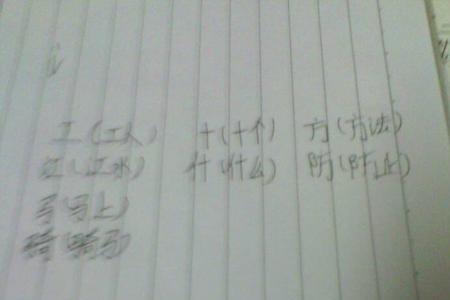 工(工人) 十(十个) 方(方法)
江(江水) 什(什么) 防(防止)
马(马上)